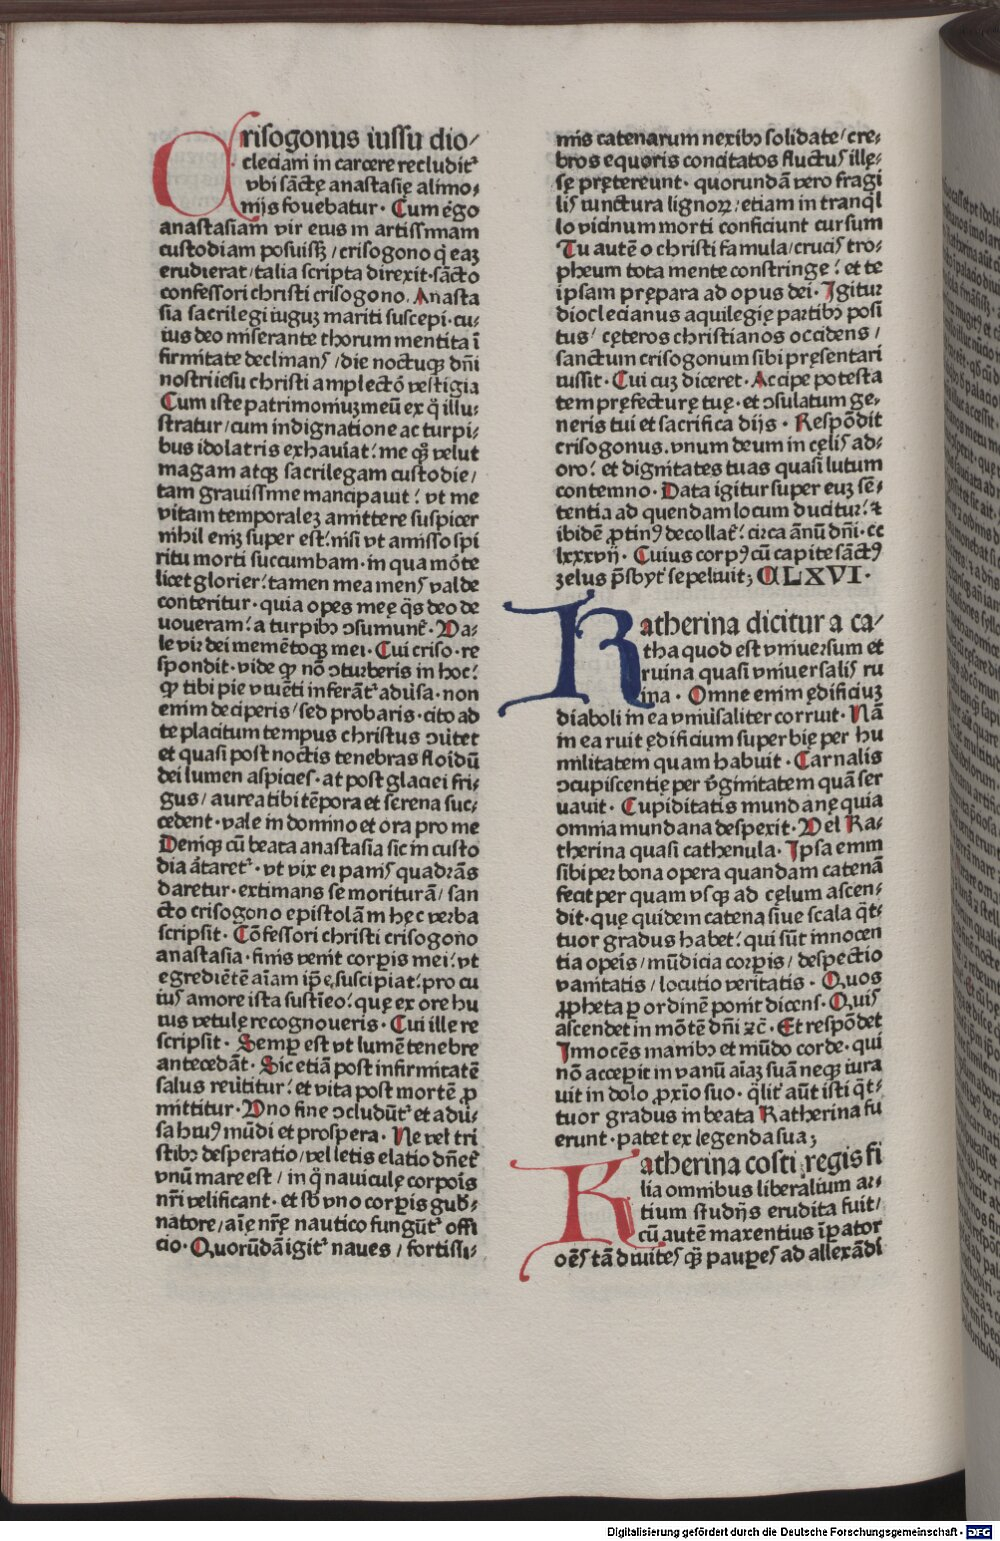 Crisogonus iussu dio/
cleciani in carcere recluditᷣ
vbi sāctę anastasię alimo⸗
nijs fouebatur· Cum ergo
anastasiam vir eius in artissimam
custodiam posuissꝫ/crisogono q̇ eaꝫ
erudierat/talia scripta direxit·sācto
confessori christi crisogono. Anasta
sia sacrilegi iuguꝫ mariti suscepi·cu⸗
ius deo miserante thorum mentita ī
firmitate declinans/die noctuqꝫ dn̄i
nostri iesu christi amplectō vestigia
Cum iste patrimoniuꝫ meū ex q̇ illu⸗
stratur/cum indignatione ac turpi⸗
bus idolatris exhauiat: me qꝫ velut
magam atqꝫ sacrilegam custodie/
tam grauissime mancipauit: vt me
vitam temporaleꝫ amittere suspicer
nihil eniꝫ super est: nisi vt amisso spi
ritu morti succumbam·in qua mōte
licet glorier: tamen mea mens valde
conteritur·quia opes meę q̄s deo de
uoueram: a turpibꝰ ↄsumunt᷑· Va⸗
le vir dei memētoqꝫ mei· Cui criso·re
spondit·vide ꝙ nō ↄturberis in hoc:
ꝙ tibi pie viuēti inferāt᷑ aduersa·non
enim deciperis/sed probaris·cito ad
te placitum tempus christus ↄuertet
et quasi post noctis tenebras floidū
dei lumen aspicies·at post glaciei fri⸗
gus/aurea tibi tēpora et serena suc⸗
cedent·vale in domino et ora pro me
Deniqꝫ cū beata anastasia sic in custo
dia ātaret᷑·vt vix ei panis quadrās
daretur·extimans se morituram/san
cto crisogono epistolam hęc verba
scripsit· Cōfessori christi crisogono
anastasia·finis venit corpis mei: vt
egrediētē aīam ip̄e suscipiat: pro cu
ius amore ista sustīeo: quę ex ore hu
ius vetulę recognoueris· Cui ille re
scripsit· Semp est vt lumē tenebre
antecedāt· Sic etiā post infirmitatē
salus reuertitur: et vita post mortē ꝓ
mittitur· Vno fine ↄcludūt᷑ et aduer⸗
sa huiꝰ mūdi et prospera· Ne vel tri
stibꝰ desperatio/vel letis elatio dn̄et᷑
vnū mare est/in q̇ nauiculę corpois
nr̄i velificant·et sb vno corpis gub⸗
natore/aīę nr̄ę nautico fungūt᷑ offi
cio· Quorūdā igit᷑ naues/fortissi⸗
mis catenarum nexibꝰ solidate/cre⸗
bros equoris concitatos fluctus ille⸗
sę prętereunt· quorundā vero fragi
lis iunctura lignoꝝ/etiam in tranq̇l
lo vicinum morti conficiunt cursum
Tu autē o christi famula/crucis tro⸗
pheum tota mente constringe: et te
ipsam prępara ad opus dei· Igitur
dioclecianus aquilegię partibꝰ posi
tus/cęteros christianos occidens/
sanctum crisogonum sibi pręsentari
iussit· Cui cuꝫ diceret· Accipe potesta
tem pręfecturę tuę·et ↄsulatum ge⸗
neris tui et sacrifica dijs· Respōdit
crisogonus.vnum deum in cęlis ad⸗
oro: et dignitates tuas quasi lutum
contemno· Data igitur super euꝫ sē⸗
tentia ad quendam locum ducitur: ⁊
ibidē ꝓtinꝰ decollat᷑: circa ānū dn̄i·cc
lxxxvij· Cuius corpꝰ cū capite sāctꝰ
zelus pr̄sbyt᷑ sepeliuit; CLXVI·
Katherina dicitur a ca⸗
tha quod est vniuersum et
ruina quasi vniuersalis ru
ina· Omne enim ędificiuꝫ
diaboli in ea vniuersaliter corruit· Nā
in ea ruit ędificium superbię per hu
militatem quam habuit· Carnalis
ↄcupiscentię per v̄ginitatem quā ser
uauit· Cupiditatis mundanę quia
omnia mundana despexit· Vel Ka⸗
therina quasi cathenula· Ipsa enim
sibi per bona opera quandam catenā
fecit per quam vsqꝫ ad cęlum ascen⸗
dit·quę quidem catena siue scala q̄t⸗
tuor gradus habet: qui sūt innocen
tia operis/mūdicia corpis/despectio
vanitatis/locutio veritatis· Quos
ꝓpheta p ordinē ponit dicens· Quis
ascendet in mōtē dn̄i ⁊c̄· Et respōdet
Innocēs manibꝰ et mūdo corde·qui
nō accepit in vanū aīaꝫ suā neqꝫ iura
uit in dolo ꝓxīo suo·q̄lit᷑ aūt isti q̄t⸗
tuor gradus in beata Katherina fu
erunt·patet ex legenda sua;
Katherina costi regis fi
lia omnibus liberalium ar⸗
tium studijs erudita fuit/
cū autē maxentius īpator
oēs tā diuites qꝫ paupes ad allexādri
Digitalisierung gefördert durch die Deutsche Forschungsgemeinschaft - DFG